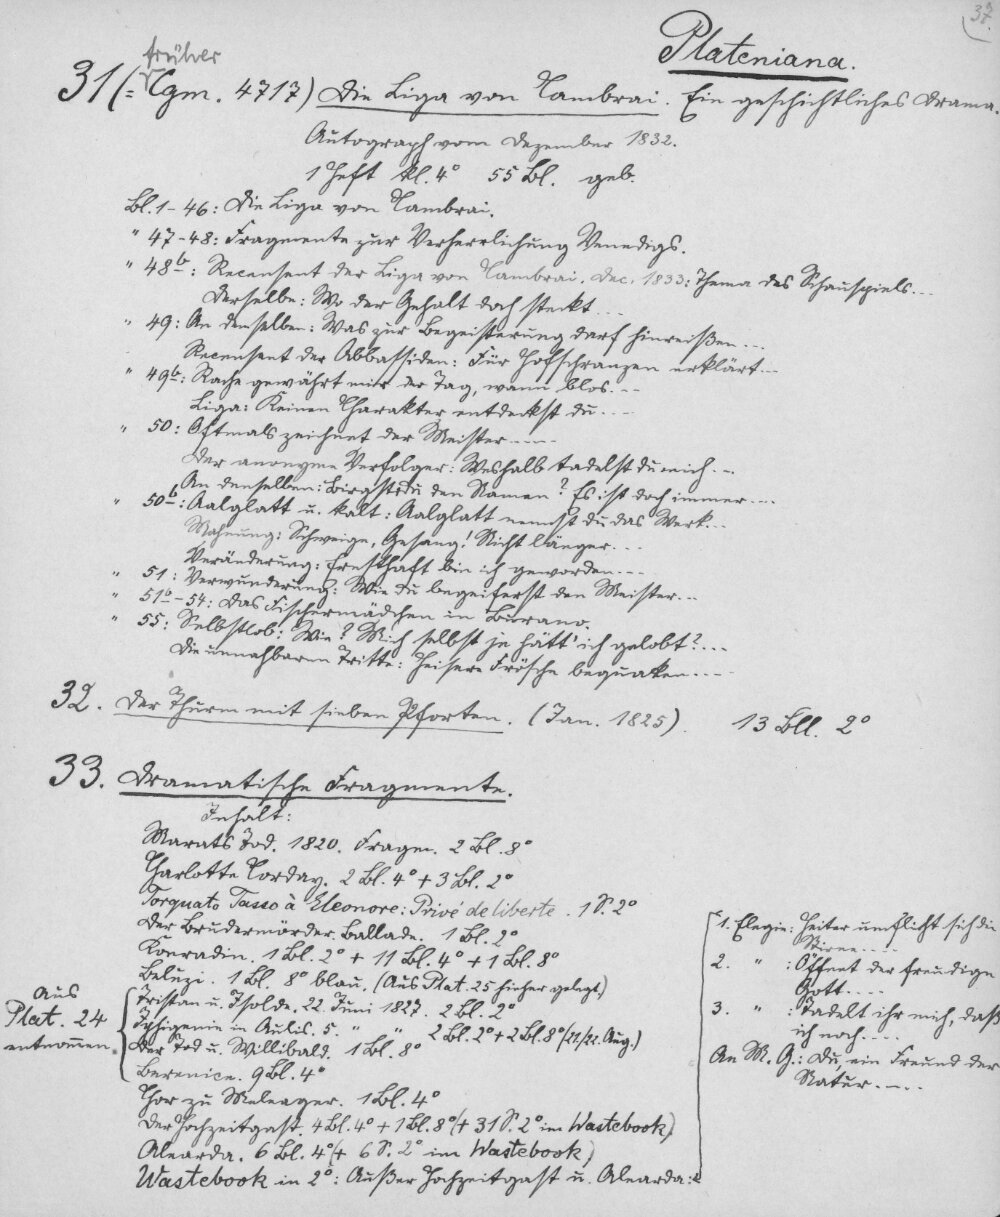 37.
Plateniana.
früher
31 (= Cgm. 4717) Die Liga von Cambrai. Ein geschichtliches Drama.
Autograph vom Dezember 1832.
1 Heft kl. 4° 55 Bl. geb.
Bl. 1-46: Die Liga von Cambrai.
" 47-48: Fragmente zur Verherrlichung Venedigs.
" 48b: Recensent der Liga von Cambrai. Dec. 1833: Thema des Schauspiels...
Derselbe: Wo der Gehalt doch steckt...
" 49: An denselben: Was zur Begeisterung darf hinreißen...
Recensent der Abbassiden: Für Hofschranzen erklärt...
" 49b: Rache gewährt mir der Tag, wann blos...
Liga: Keinen Charakter entdeckst du...
" 50: Oftmals zeichnet der Meister....
Der anonyme Verfolger: Weshalb tadelst du mich...
An denselben: Birgst du den Namen? Es ist doch immer...
" 50b: Aalglatt u. kalt: Aalglatt nennst du das Werk...
Mahnung: Schweige, Gesang! Nicht länger...
Veränderung: Ernsthaft bin ich geworden...
" 51: Verwunderung: Wie du begeiferst den Meister...
" 51b-54: Das Fischermädchen in Burano.
" 55: Selbstlob: Wie? Mich selbst je hätt' ich gelobt?...
Die unnahbaren Tritte: Heisere Frösche bequaken....
32. Der Thurm mit sieben Pforten. (Jan. 1825). 13 Bll. 2°
33. Dramatische Fragmente.
Inhalt:
Marats Tod. 1820. Fragm. 2 Bl. 8°
Charlotte Corday. 2 Bl. 4° + 3 Bl. 2°
Torquato Tasso à Eleonore: Privé de liberte. 1 S. 2°
Der Brudermörder. Ballade. 1 Bl. 2°
Konradin. 1 Bl. 2° + 11 Bl. 4° + 1 Bl. 8°
Beluzi. 1 Bl. 8° blau. (Aus Plat. 25 hieher gelegt)
Aus
Plat. 24
entnommen.
Tristan u. Isolde. 22. Juni 1827. 2 Bl. 2°
Iphigenie in Aulis. 5. " " 2 Bl. 2° + 2 Bl. 8° (21/22. Aug.)
Der Tod u. Willibald. 1 Bl. 8°
Berenice. 9 Bl. 4°
Chor zu Meleager. 1 Bl. 4°
Der Hochzeitgast. 4 Bl. 4° + 1 Bl. 8° (+ 31 S. 2° im Wastebook)
Alearda. 6 Bl. 4° (+ 6 S. 2° im Wastebook)
Wastebook in 2°: Außer Hochzeitgast u. Alearda:
1. Elegie: Heiter umflicht sich die
Stirne....
2. " : Öffnet der freudige
Gott....
3. " : Tadelt ihr mich, daß
ich noch....
An M. G.: Du, ein Freund der
Natur....